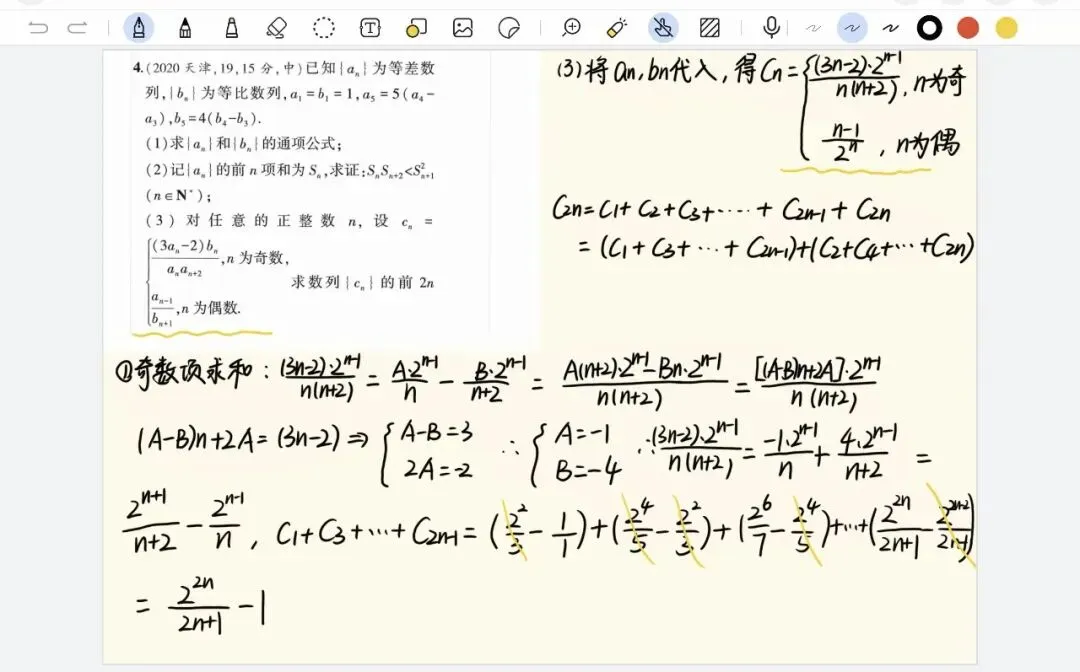 4.(2020天津,19,15分,中)已知{aₙ}为等差数
列,{bₙ}为等比数列,a₁=b₁=1,a₅=5(a₄-
a₃),b₅=4(b₄-b₃).
(1)求{aₙ}和{bₙ}的通项公式;
(2)记{aₙ}的前n项和为Sₙ,求证:SₙSₙ₊₂<S²ₙ₊₁
(n∈N*);
(3)对任意的正整数n,设cₙ=
{(3aₙ-2)bₙ/(aₙaₙ₊₂),n为奇数,
aₙ₋₁/bₙ₊₁,n为偶数.
求数列{cₙ}的前2n
(3)将an,bn代入,得Cn={(3n-2)·2^(n-1)/(n(n+2)),n为奇
(n-1)/2^n,n为偶
C2n=C1+C2+C3+·····+C2n-1+C2n
=(C1+C3+···+C2n-1)+(C2+C4+···+C2n)
①奇数项求和:(3n-2)·2^(n-1)/(n(n+2))=A·2^(n-1)/n-B·2^(n-1)/(n+2)=(A(n+2)·2^(n-1)-Bn·2^(n-1))/(n(n+2))=[(A-B)n+2A]·2^(n-1)/(n(n+2))
(A-B)n+2A=(3n-2)⇒{A-B=3 2A=-2 ∴{A=-1 B=-4 ∴(3n-2)·2^(n-1)/(n(n+2))=-1·2^(n-1)/n+4·2^(n-1)/(n+2)=
2^(n+1)/(n+2)-2^(n-1)/n,C1+C3+···+C2n-1=(2²/3-1/1)+(2⁴/5-2²/3)+(2⁶/7-2⁴/5)+···+(2^(2n)/(2n+1)-2^(2n-2)/(2n-1))
=2^(2n)/(2n+1)-1